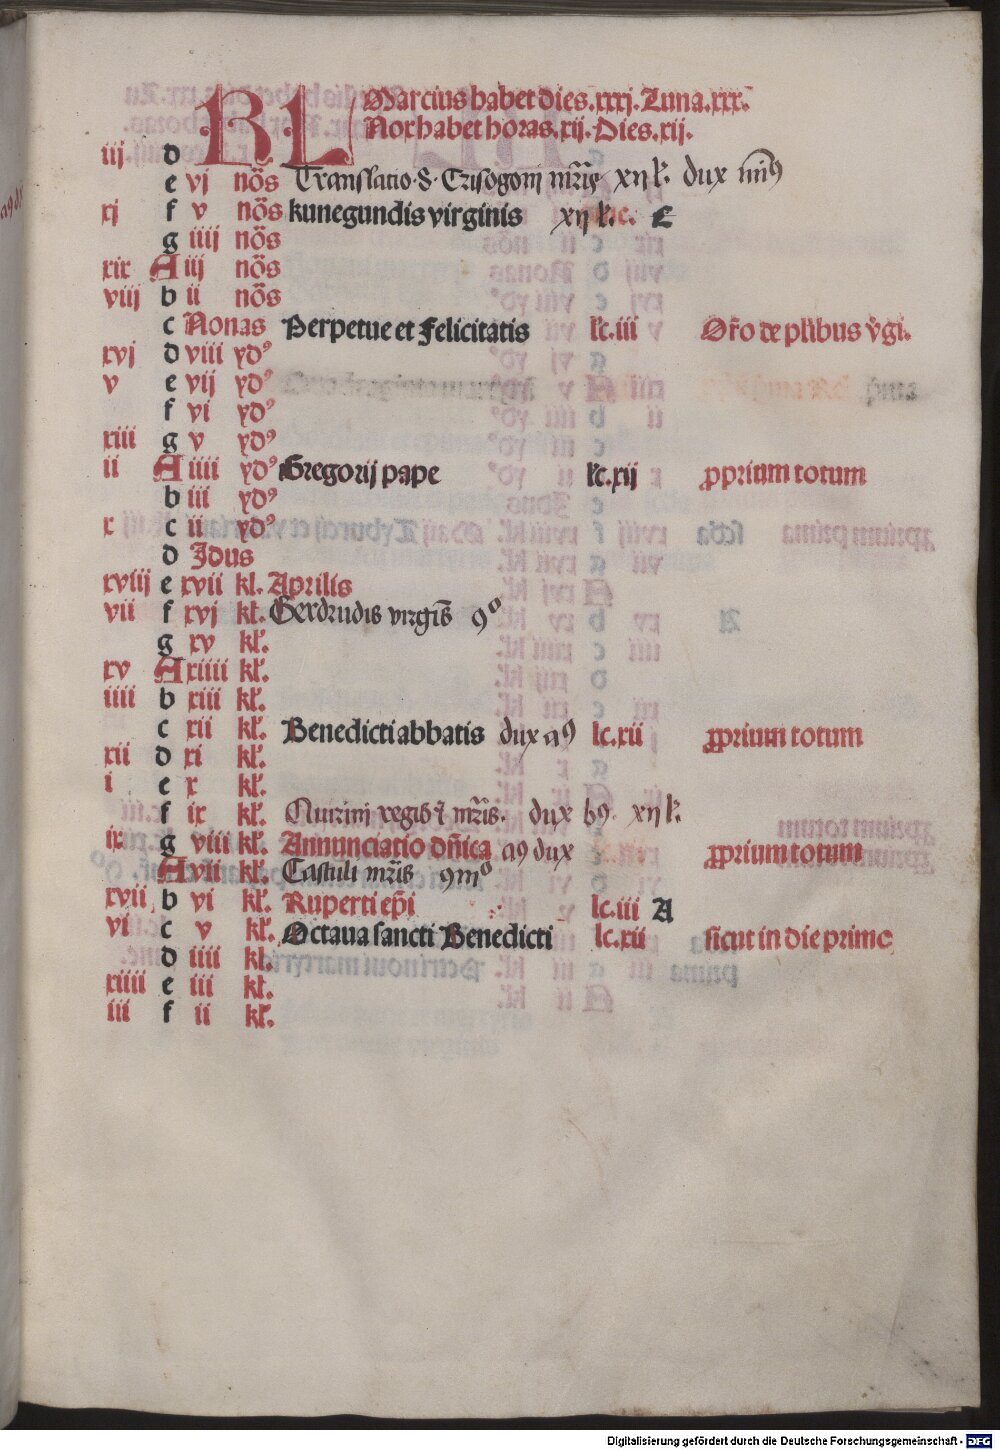 KL Marcius habet dies .xxxj. Luna .xxx.
Nox habet horas .xij. Dies .xij.
iij d
e vj nōs Translatio S. Crisogoni mr̄is xij lc. dux
xj f v nōs kunegundis virginis xij lc. E
g iiij nōs
xix A iij nōs
viij b ii nōs
c Nonas Perpetue et Felicitatis lc. iii Or̄o de pluribus v̄gi.
xvj d viii yd9
v e vij yd9
f vi yd9
xiii g v yd9
ii A iiii yd9 Gregorij pape lc. xij ꝓprium totum
b iii yd9
x c ii yd9
d Idus
xviij e xvii kl. Aprilis
vii f xvj kl. Gerdrudis virgīs 9o
g xv kl.
xv A xiiii kl.
iiii b xiii kl.
c xii kl. Benedicti abbatis dux a9 lc. xii ꝓprium totum
xii d xi kl.
i e x kl.
f ix kl. Quirini regis et mr̄is. dux b9. xij lc.
ix g viii kl. Annunciatio dn̄ica a9 dux ꝓprium totum
A vii kl. Castuli mr̄is 9mo
xvii b vi kl. Ruperti ep̄i lc. iii A
vi c v kl. Octaua sancti Benedicti lc. xii sicut in die primo
d iiii kl.
xiiii e iii kl.
iii f ii kl.
Digitalisierung gefördert durch die Deutsche Forschungsgemeinschaft - DFG